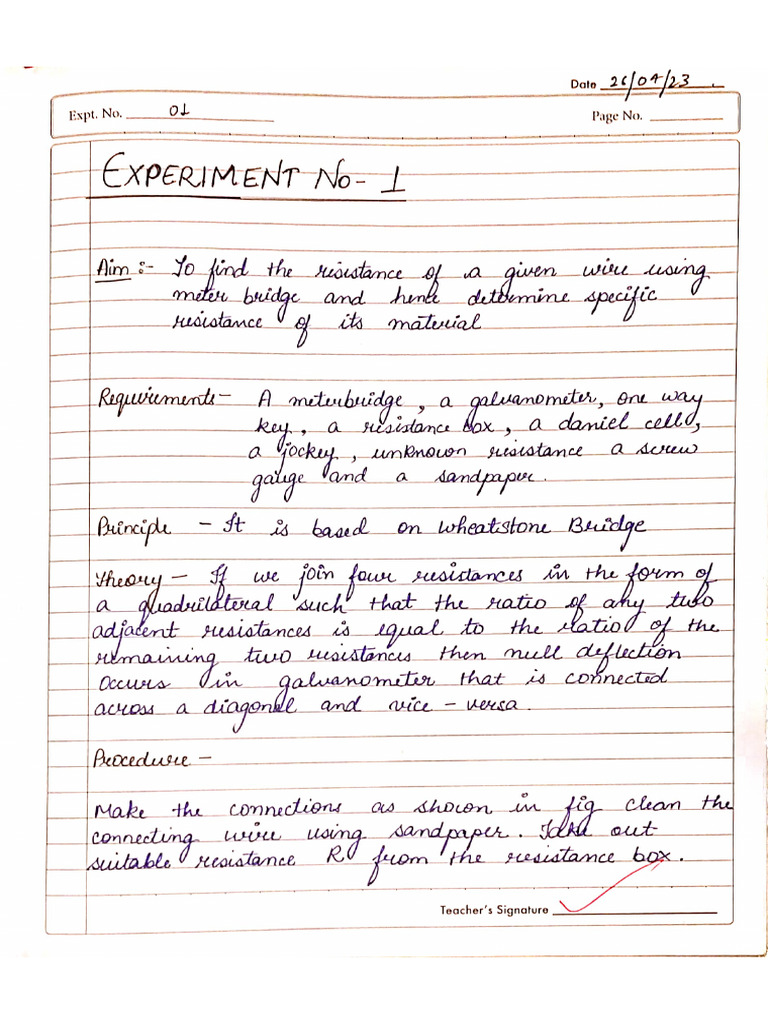 Date 26/04/23 .
Expt. No. 01
Page No.
EXPERIMENT No- 1
Aim :- To find the resistance of a given wire using
meter bridge and hence determine specific
resistance of its material
Requirements - A meterbridge , a galvanometer, one way
key , a resistance box , a daniel cell,
a jockey , unknown resistance a screw
gauge and a sandpaper .
Principle - It is based on wheatstone Bridge
Theory - If we join four resistances in the form of
a quadrilateral such that the ratio of any two
adjacent resistances is equal to the ratio of the
remaining two resistances then null deflection
occurs in galvanometer that is connected
across a diagonal and vice - versa .
Procedure -
Make the connections as shown in fig clean the
connecting wire using sandpaper . Take out
suitable resistance R from the resistance box .
Teacher's Signature